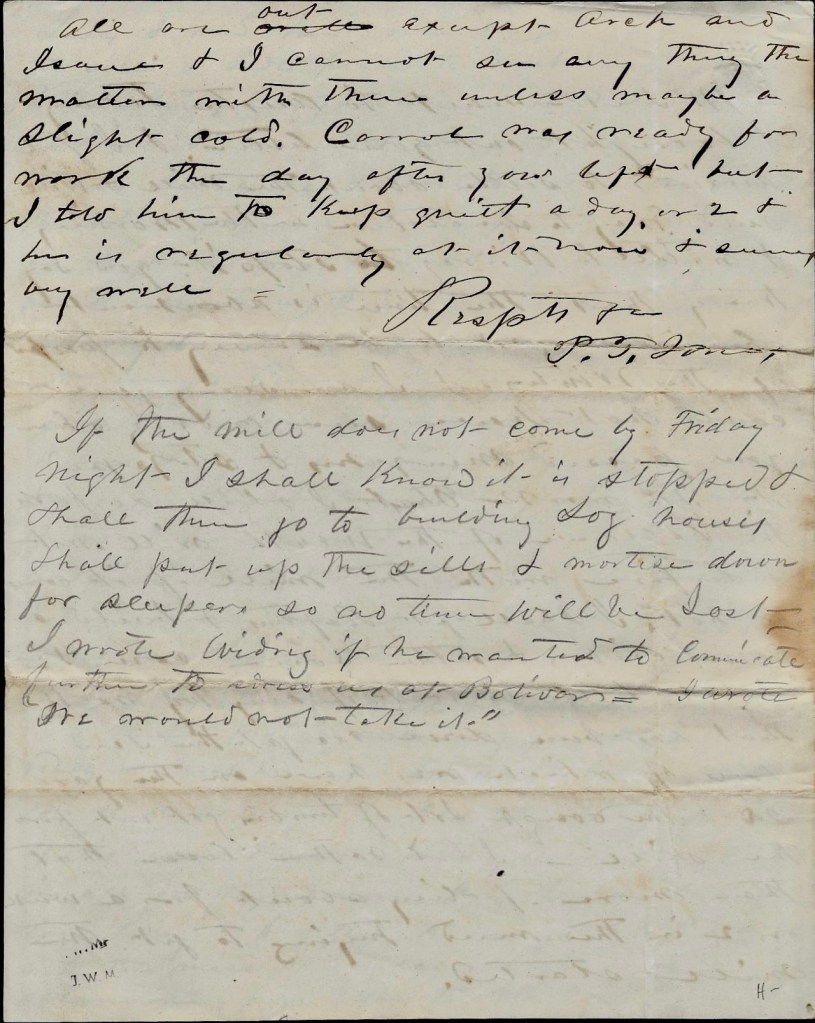 out
All are well except Arch and
Isaac & I cannot see any thing the
matter with them unless maybe a
slight cold. Carrol was ready for
work the day after you left but
I told him to keep quiett a day or 2 &
he is regularly at it now & seems
very well =
Respts &c
P. T. Jones
If the mill does not come by Friday
night I shall Know it is stopped &
shall then go to building Log houses
shall put up the sills & mortise down
for sleepers so no time will be Lost
I wrote if he wanted to Comunicate
further to us at Bolivar = I wrote
"We would not take it."
J. W. M
H-